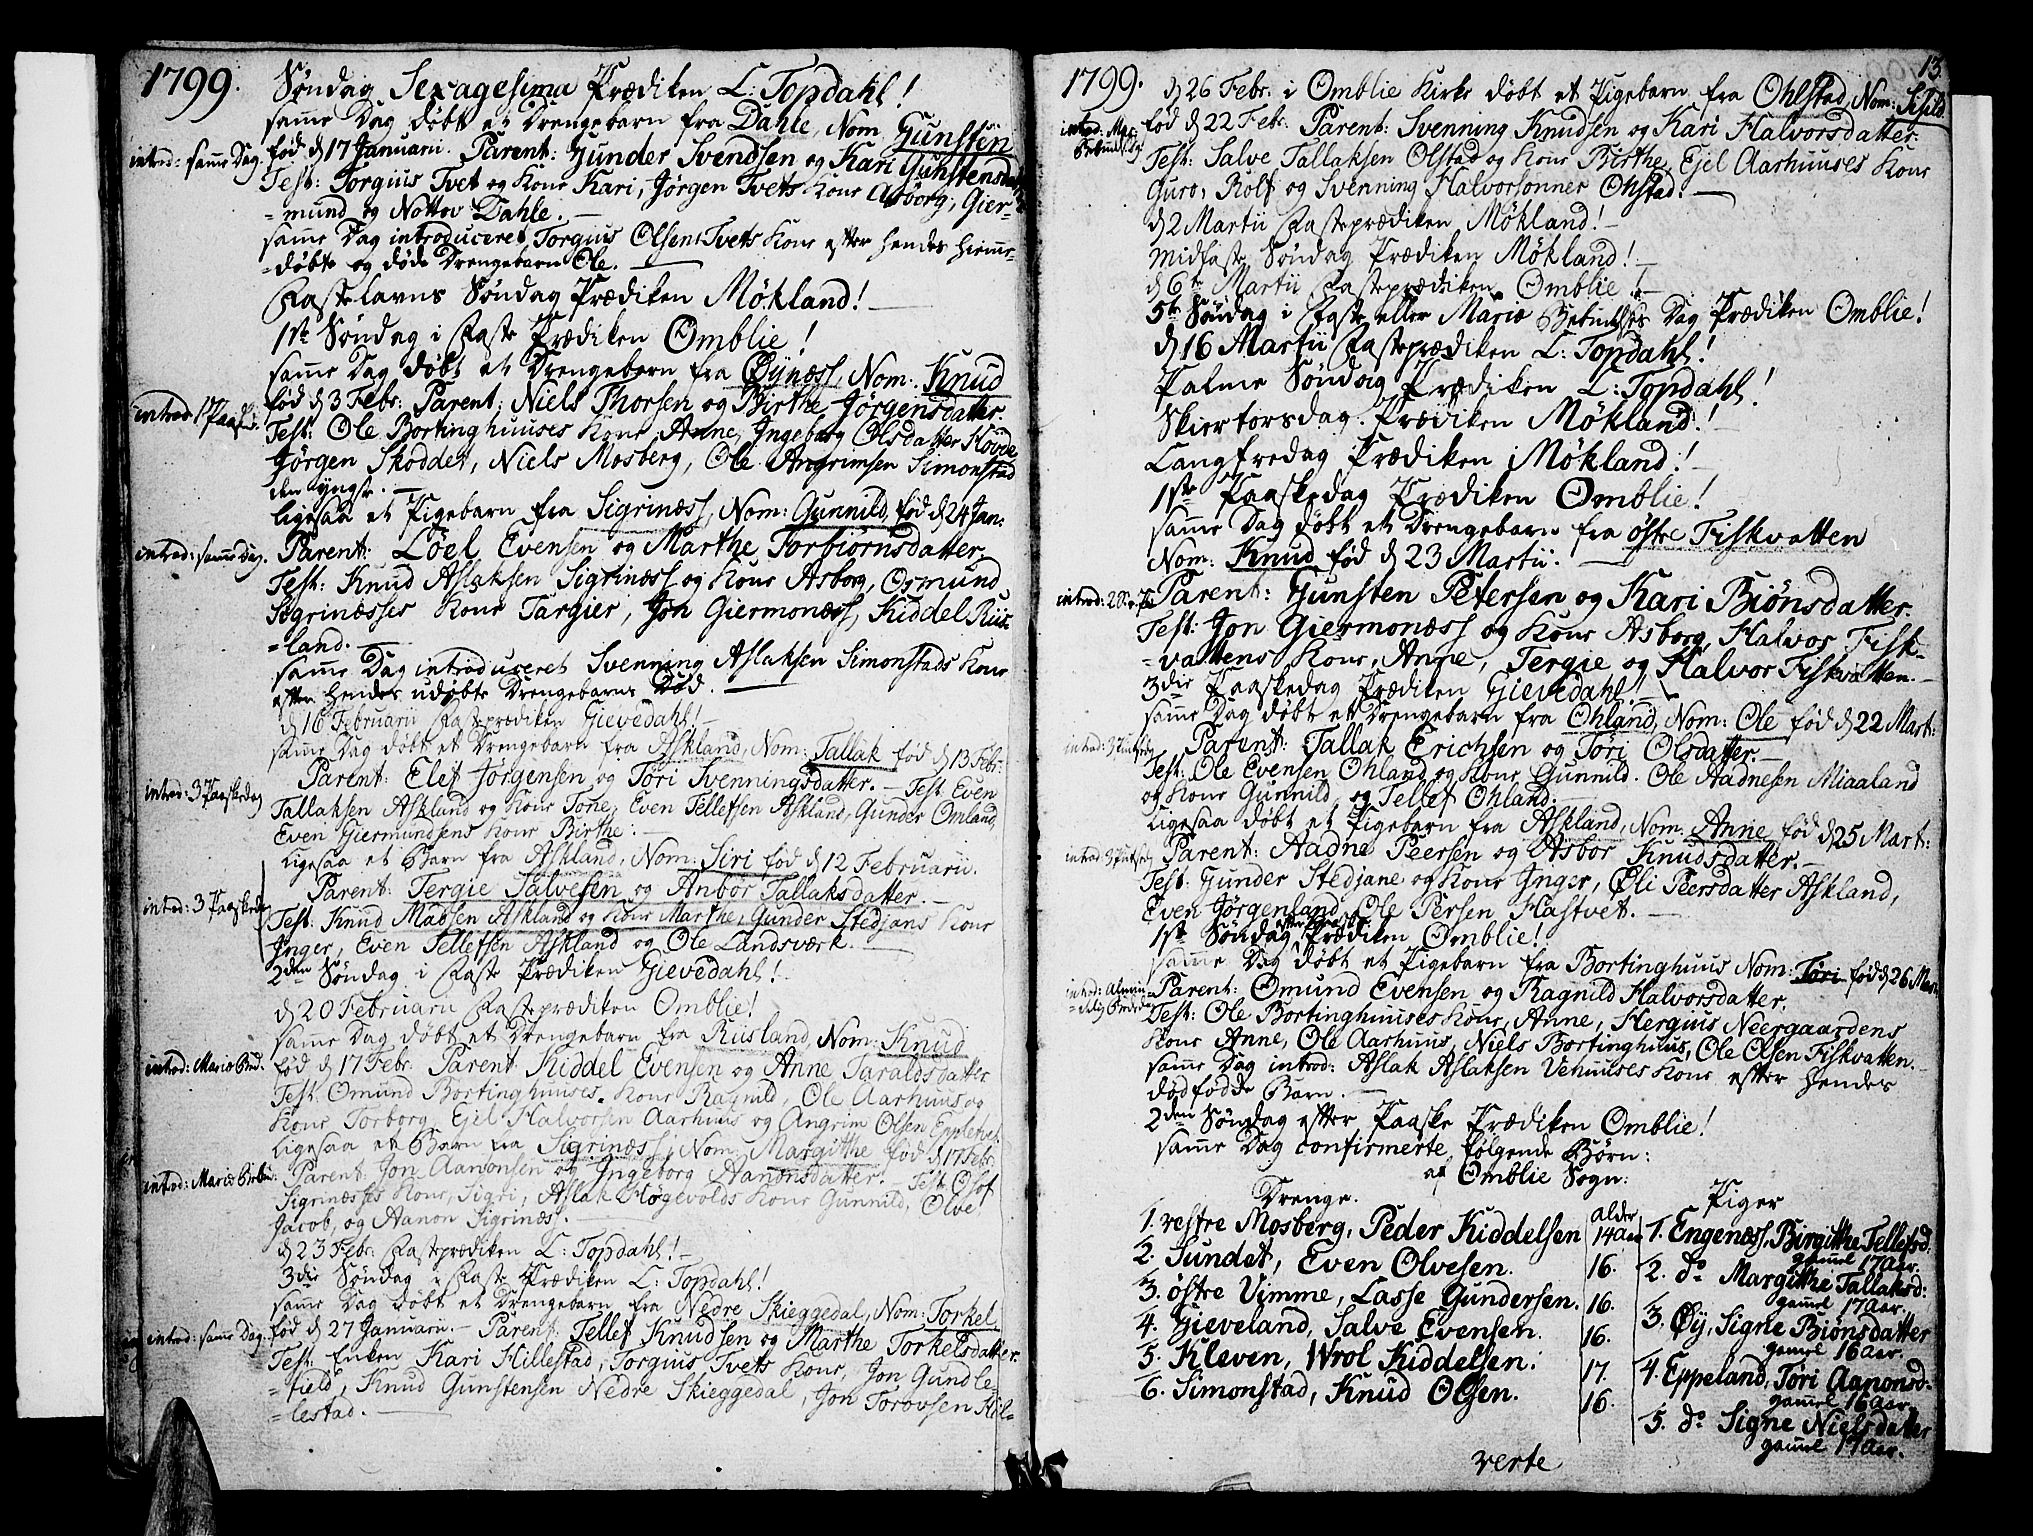 1799. Søndag Sexagesima Prædiken L: Topdahl!
samme Dag døbt et Drengebarn fra Dahle, Nom: Gunsten
introd: samme Dag. fød d 17 Januarii. Parent: Gunder Svendsen og Kari Gunstensdatter
Test: Torgius Tvet og Kone Kari, Jørgen Tvets Kone Asborg, Gier-
=mund og Nottov Dahle. —
samme Dag introduceret Torgius Olsens Tvets Kone efter hendes hieme-
=døbte og døde Drengebarn Ole. —
Fastelavns Søndag Prædiken Møkland! —
1ste Søndag i Faste Prædiken Omblie!
samme Dag døbt et Drengebarn fra Øynæss, Nom: Knud
introd: 1 Paasked: fød d 3 Febr: Parent: Niels Thorsen og Birthe Jørgensdatter.
Test: Ole Bortinghuuses Kone Anne, Ingeborg Olsdatter Hovde
Jørgen Skoddet, Niels Mosberg, Ole Angrimsen Simonstad
den yngre. —
ligesaa et Pigebarn fra Sigrinæss, Nom: Gunnild, fød d 24 Jan:
introd: samme Dag. Parent: Løel Evensen og Marthe Torbiørnsdatter.
Test: Knud Aslaksen Sigrinæss og Kone Asborg, Osmund
Sigrinæsses Kone Targier, Jon Giermonæss, Kiddel Riis-
=land. —
samme Dag introduceret Svenning Aslaksen Simonstads Kone
efter hendes udøbte Drengebarns Død. —
d 16 Februarii Fasteprædiken Gievedahl! —
samme Dag døbt et Drengebarn fra Askland, Nom: Tallak fød d 13 Febr:
Parent: Elef Jørgensen og Tori Svenningsdatter. — Test: Even
introd: 3 Paaskedag Tallaksen Askland og Kone Tone, Even Tellefsen Askland, Gunder Omland,
Even Giermundsens Kone Birthe. —
ligesaa et Barn fra Askland, Nom: Siri fød d 12 Februarii.
Parent: Tergie Salvesen og Anbor Tallaksdatter. —
introd: 3 Paaskeda Test: Knud Madsen Askland og Kone Marthe, Gunder Stedjans Kone
Inger, Even Tellefsen Askland og Ole Landsværk. —
2den Søndag i Faste Prædiken Gievedahl! —
d 20 Februarii Fasteprædiken Omblie!
samme Dag døbt et Drengebarn fra Riisland, Nom: Knud
introd: Mariæ Bud. fød d 17 Febr. Parent: Kiddel Evensen og Anne Taraldsdatter
Test: Omund Bortinghuuses Kone Ragnild, Ole Aarhuus og
Kone Torborg, Ejel Halvorsen Aarhuus og Angrim Olsen Eppletvet.
ligesaa et Barn fra Sigrinæss, Nom: Margitthe fød d 17 Febr:
introd: Mariæ Bebud: Parent: Jon Aanonsen og Ingeborg Aanonsdatter. — Test: Osof
Sigrinæsses Kone, Sigri, Aslak Høgevolds Kone Gunnild, Olve
Jacob, og Aanon Sigrinæss. —
d 23 Febr: Fasteprædiken L: Topdahl! —
3die Søndag i Faste Prædiken L: Topdahl!
samme Dag døbt et Drengebarn fra Nedre Skieggedal, Nom: Torkel
introd: samme Dag. fød d 27 Januarii. — Parent: Tellef Knudsen og Marthe Torkelsdatter.
Test: Enken Kari Hillestad, Torgius Tvets Kone, Jon Gundle-
=field, Knud Gunstensen Nedre Skieggedal, Jon Torovsen Hil-
=lestad. —
13.
1799. d 26 Febr. i Omblie Kirke døbt et Pigebarn fra Ohlstad, Nom:
introd: Mar: Bebudelsdag fød d 22 Febr. Parent: Svenning Knudsen og Kari Halvorsdatter.
Test: Salve Tallaksen Olstad og Kone Birthe, Ejel Aarhuuses Kone
Guro, Rolf og Svenning Halvorsønner Ohlstad. —
d 2 Martii Fasteprædiken Møkland! —
Midfaste Søndag Prædiken Møkland! —
d 6te Martii Fasteprædiken Omblie! —
5te Søndag i Faste eller Mariæ Bebudelses Dag Prædiken Omblie!
d 16 Martii Fasteprædiken L: Topdahl!
Palme Søndag Prædiken L: Topdahl!
Skiertorsdag Prædiken Møkland! —
Langfredag Prædiken Møkland! —
1ste Paaskedag Prædiken Omblie!
samme Dag døbt et Drengebarn fra østre Fiskvatten
Nom: Knud fød d 23 Martii. —
Parent: Gunsten Petersen og Kari Biønsdatter.
Test: Jon Giermonæss og Kone Asborg, Halvor Fisk-
=vattens Kone, Anne, Tergie og Halvor Fiskvatten. —
3die Paaskedag Prædiken Gievedahl!
samme Dag døbt et Drengebarn fra Ohland, Nom: Ole fød d 22 Mart:
introd: 3 Pintsedg Parent: Tallak Erichsen og Tori Olsdatter. —
Test: Ole Evensen Ohland og Kone Gunnild. Ole Aadnesen Miaaland
og Kone Gunnild, og Tellef Ohland. —
ligesaa døbt et Pigebarn fra Askland, Nom: Anne, fød d 25 Mart:
introd: 3 Pintsed Parent: Aadne Peersen og Asbor Knudsdatter. —
Test: Gunder Stedjane og Kone Inger, Oli Peersdatter Askland,
Even Jørgenland, Ole Persen Hastvet. —
1ste Søndag efter Paaske Prædiken Omblie!
samme Dag døbt et Pigebarn fra Bortinghuus Nom: Tori fød d 26 Mar:
introd: Almin=delig Bededa Parent: Omund Evensen og Ragnild Halvorsdatter.
Test: Ole Bortinghuuses Kone, Anne, Hergius Neergaardens
Kone Anne, Ole Aarhuus, Niels Bortinghuus, Ole Olsen Fiskvatten. —
samme Dag introd: Aslak Aslaksen Vehuuses Kone efter hendes
dødfødde Barn. —
2den Søndag efter Paaske Prædiken Omblie!
samme Dag confirmerte følgende Børn:
af Omblie Sogn:
Drenge. alder Piger
1. vestre Mosberg, Peder Kiddelsen 14 aar 1. Engenæss, Birgitthe Tellefsd.
gamel 17 aar.
2. Sundet, Even Olvesen. 16. 2. do Margitthe Tallaksd:
gamel 17 aar.
3. østre Vimme, Lasse Gundersen. 16. 3. Øy, Signe Biønsdatter
gamel 16 aar.
4. Gieveland, Salve Evensen. 16. 4. Eppeland, Tori Aanonsd:
gamel 16 aar.
5. Kleven, Wrol Kiddelsen. 17. 5. do Signe Nielsdatter
gamel 17 aar.
6. Simonstad, Knud Olsen. 16.
verte